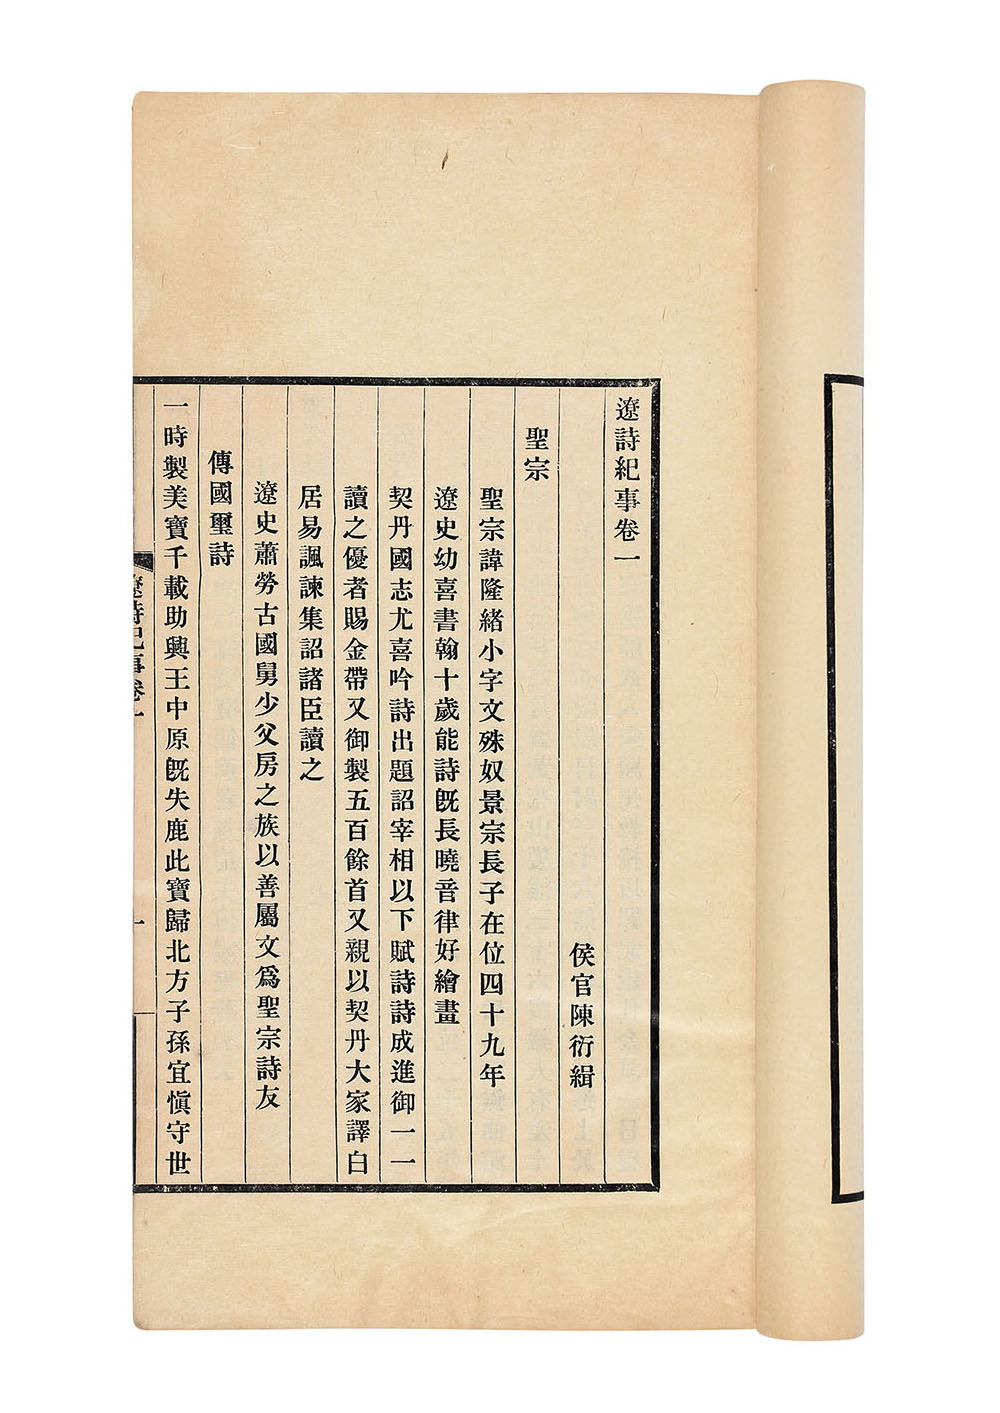 遼詩紀事卷一
侯官陳衍緝
聖宗
聖宗諱隆緒小字文殊奴景宗長子在位四十九年
遼史幼喜書翰十歲能詩旣長曉音律好繪畫
契丹國志尤喜吟詩出題詔宰相以下賦詩詩成進御一一
讀之優者賜金帶又御製五百餘首又親以契丹大家譯白
居易諷諫集詔諸臣讀之
遼史蕭勞古國舅少父房之族以善屬文爲聖宗詩友
傳國璽詩
一時製美寶千載助興王中原旣失鹿此寶歸北方子孫宜愼守世
遼詩紀事卷一
一